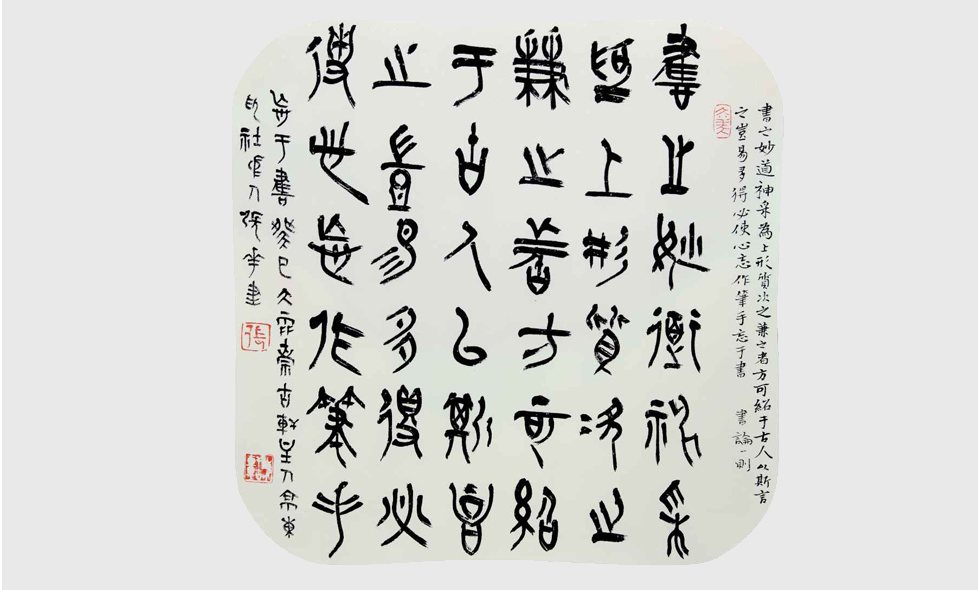 書之妙道神采為上形質次之兼之者方可紹于古人以斯言
之豈易多得必使心忘作筆手忘于書 書論一則
書之妙道神采
為上形質次之
兼之者方可紹
于古人以斯言
之豈易多得必
使心忘作筆手
忘于書癸巳
印社
張